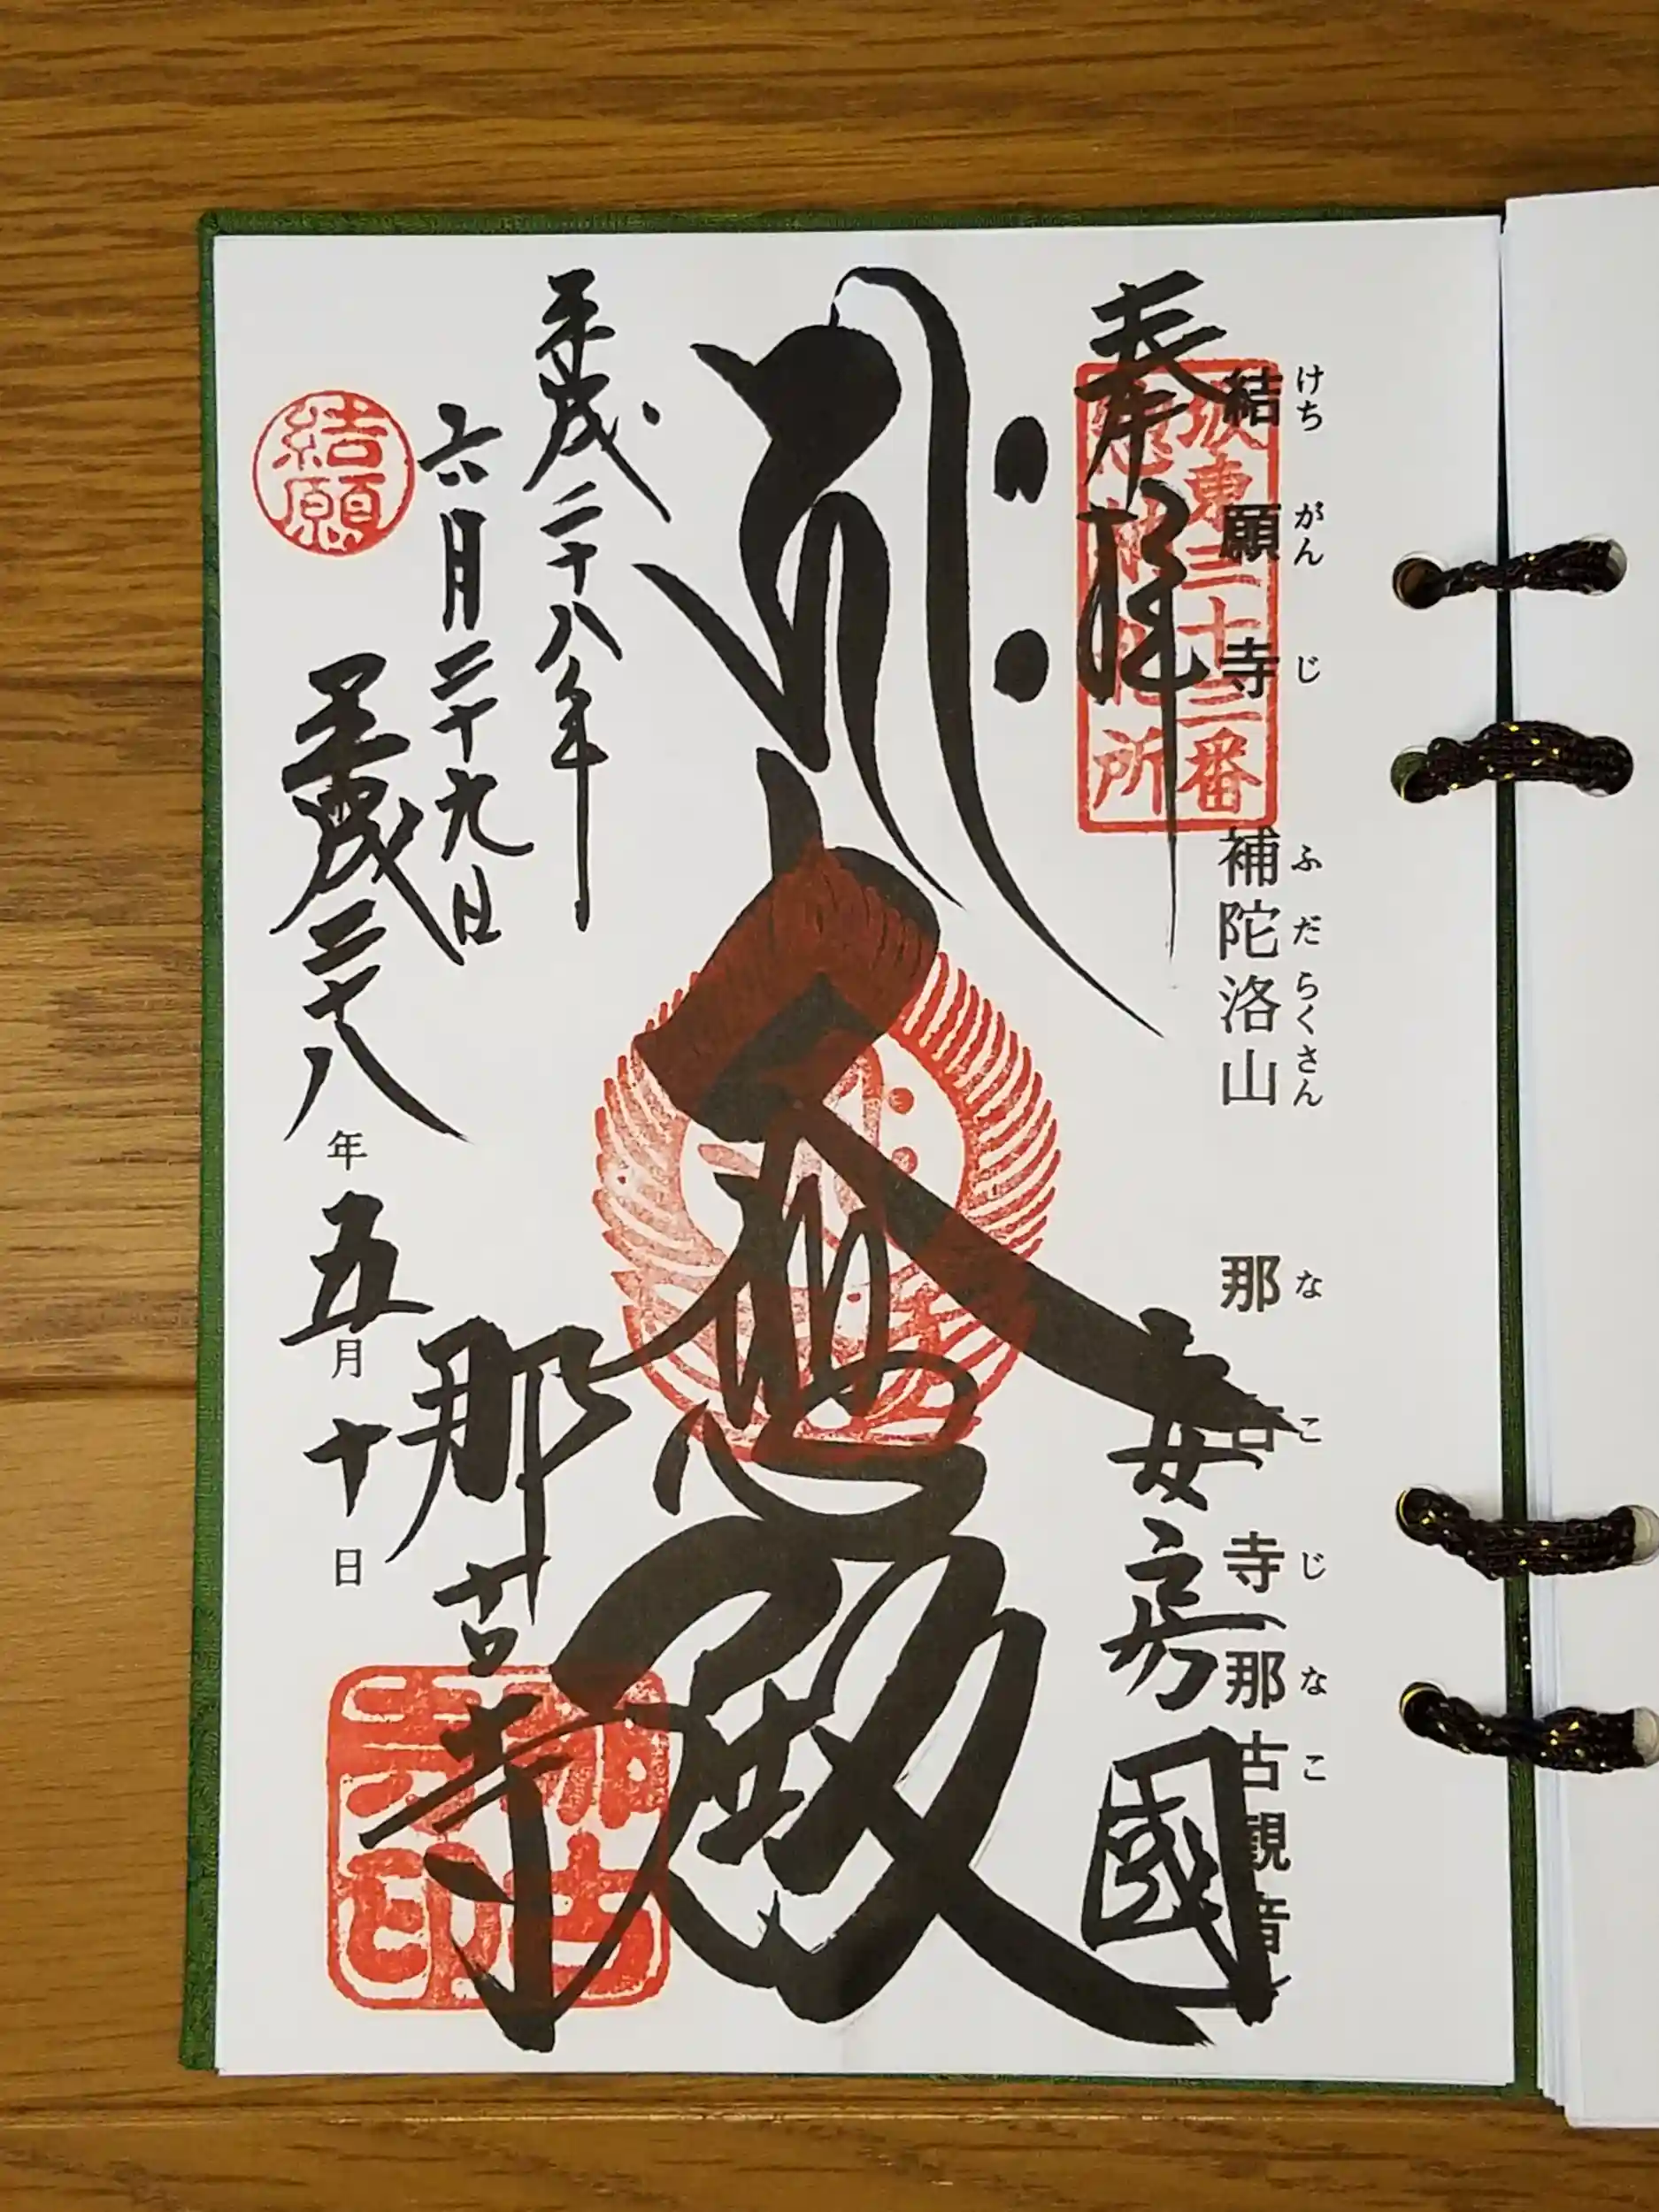 結願寺 補陀洛山 那古寺(那古観音)
けちがんじ ふだらくさん なこじ なこ
奉拝
坂東三十三番
所
安房國
大悲殿
平成二十八年
六月二十九日
那古寺
結願
平成二十八年五月十日